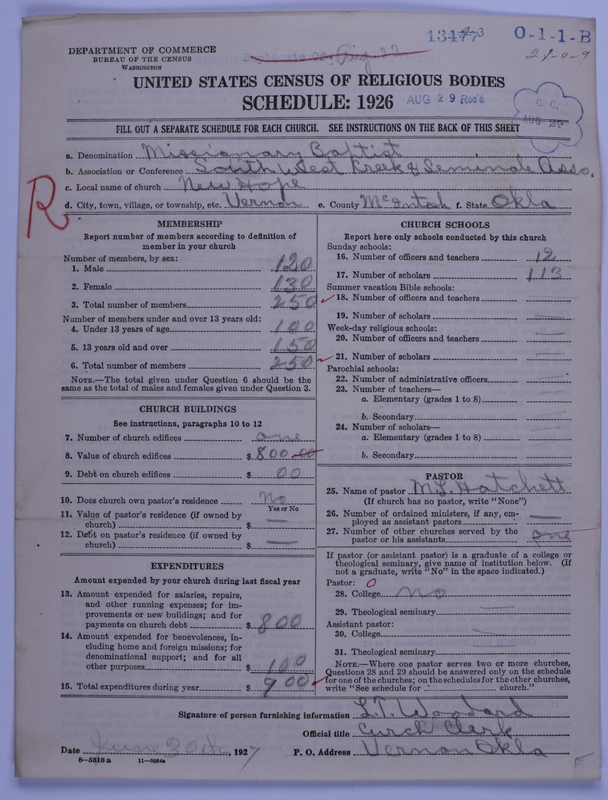 13477-3 0-1-1-B
DEPARTMENT OF COMMERCE
BUREAU OF THE CENSUS
WASHINGTON
21-0-9
UNITED STATES CENSUS OF RELIGIOUS BODIES
SCHEDULE: 1926 AUG 29 Rec'd
C. C.
AUG
FILL OUT A SEPARATE SCHEDULE FOR EACH CHURCH. SEE INSTRUCTIONS ON THE BACK OF THIS SHEET
a. Denomination Missionary Baptist
b. Association or Conference South West Kreek & Seminole Asso.
c. Local name of church New Hope
d. City, town, village, or township, etc. Vernon e. County McIntosh f. State Okla
R
MEMBERSHIP
Report number of members according to definition of
member in your church
Number of members, by sex:
1. Male 120
2. Female 130
3. Total number of members 250
Number of members under and over 13 years old:
4. Under 13 years of age 100
5. 13 years old and over 150
6. Total number of members 250
NOTE.—The total given under Question 6 should be
the same as the total of males and females given under Question 3.
CHURCH BUILDINGS
See instructions, paragraphs 10 to 12
7. Number of church edifices one
8. Value of church edifices $ 800 00
9. Debt on church edifices $ 00
10. Does church own pastor's residence No
Yes or No
11. Value of pastor's residence (if owned by
church) $ —
12. Debt on pastor's residence (if owned by
church) $ —
EXPENDITURES
Amount expended by your church during last fiscal year
13. Amount expended for salaries, repairs,
and other running expenses; for im-
provements or new buildings; and for
payments on church debt $ 800
14. Amount expended for benevolences, in-
cluding home and foreign missions; for
denominational support; and for all
other purposes $ 100
15. Total expenditures during year $ 900
CHURCH SCHOOLS
Report here only schools conducted by this church
Sunday schools:
16. Number of officers and teachers 12
17. Number of scholars 113
Summer vacation Bible schools:
18. Number of officers and teachers —
19. Number of scholars —
Week-day religious schools:
20. Number of officers and teachers —
21. Number of scholars —
Parochial schools:
22. Number of administrative officers
23. Number of teachers—
a. Elementary (grades 1 to 8)
b. Secondary
24. Number of scholars—
a. Elementary (grades 1 to 8)
b. Secondary
PASTOR
25. Name of pastor M. L. Hatchett
(If church has no pastor, write "None")
26. Number of ordained ministers, if any, em-
ployed as assistant pastors —
27. Number of other churches served by the
pastor or his assistants one
If pastor (or assistant pastor) is a graduate of a college or
theological seminary, give name of institution below. (If
not a graduate, write "No" in the space indicated.)
Pastor: 0
28. College no
29. Theological seminary —
Assistant pastor:
30. College —
31. Theological seminary —
NOTE.—Where one pastor serves two or more churches,
Questions 28 and 29 should be answered only on the schedule
for one of the churches; on the schedules for the other churches,
write "See schedule for church."
Signature of person furnishing information L. T. Woodard
Official title Curch Clerk
Date June 20th, 1927 P. O. Address Vernon Okla
8—5518 a 11—9084a